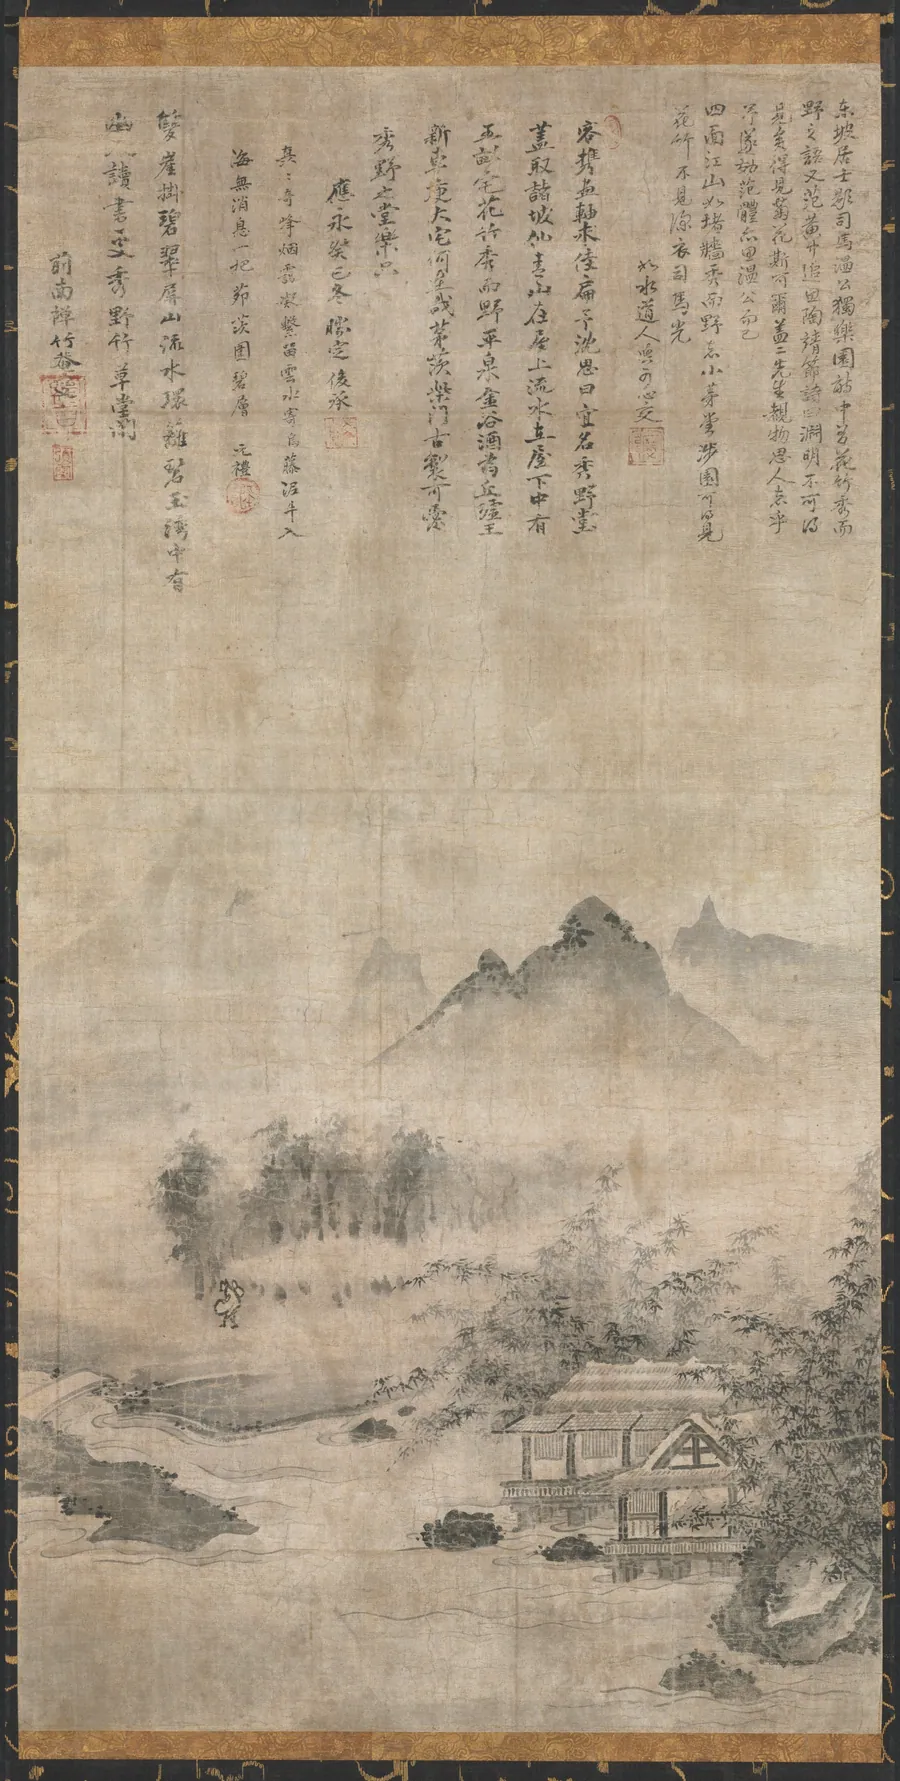 東坡居士題司馬溫公獨樂園詩中曰花竹秀而
野之語又范黃中追思陶靖節詩曰淵明不可得
見矣得見菊花斯可爾蓋二先生觀物思人者乎
予遂効范體亦思溫公而已
四面江山如堵牆秀而野者小茅堂涉園可得見
花竹不見深衣司馬光
如水道人
客携畫軸求佳扁予沈思曰宜名秀野堂
蓋取諸坡仙青山在屋上流水在屋下中有
五畝宅花竹秀而野平泉金谷酒為丘
新豊大宅何足哉茅茨柴門古製可愛
秀野之堂樂只
應永癸巳冬 勝定
奇峰烟雲水寄
海無消息一把茆茨圍碧層
元禮
雙崖掛碧翠屏山流水環籬碧玉灣中有
幽人讀書處秀野竹草堂閑
前南禅竹菴